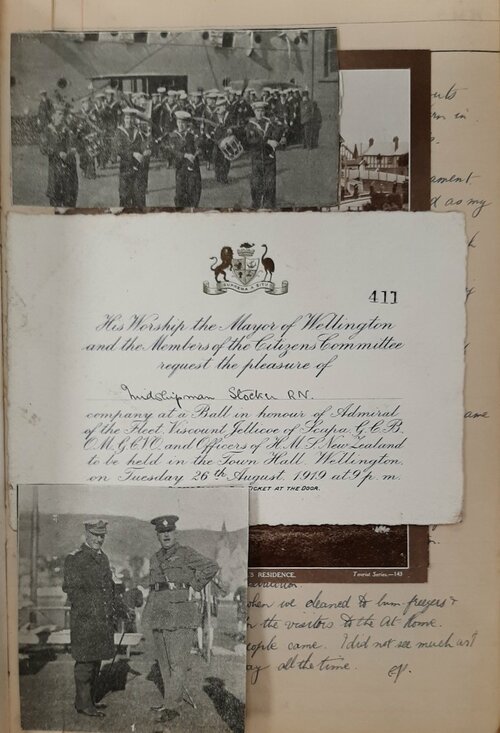 outs
in
ament
as my
SUPREMA A SITU
411
His Worship the Mayor of Wellington
and the Members of the Citizens Committee
request the pleasure of
Midshipman Stocker R.N.
company at a Ball in honour of Admiral
of the Fleet, Viscount Jellicoe of Scapa, G.C.B.
O.M., G.C.V.O. and Officers of H.M.S. New Zealand
to be held in the Town Hall, Wellington,
on Tuesday 26th August, 1919 at 9 p.m.
TICKET AT THE DOOR.
ame
RESIDENCE. Tourist Series.—143
when we cleaned to bum-freezers &
the visitors to the At Home.
people came. I did not see much as I
all the time.